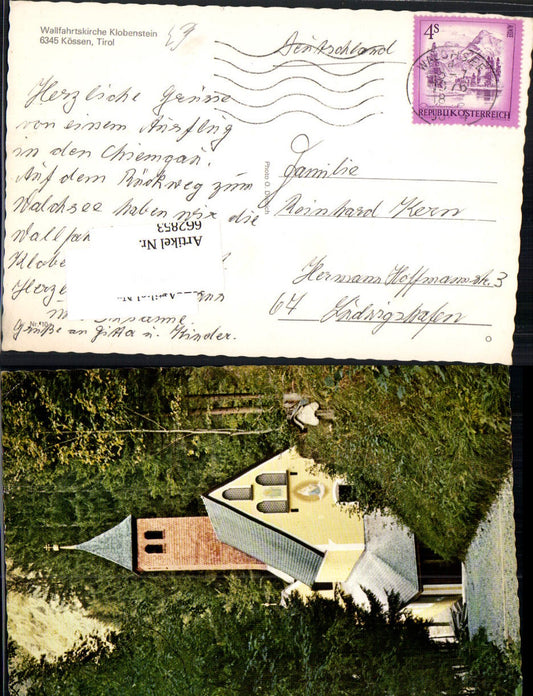 Wallfahrtskirche Klobenstein
6345 Kössen, Tirol
Deutschland
4S
REPUBLIK ÖSTERREICH
Herzliche Grüsse
von einem Ausflug
in den Chiemgau.
Auf dem Rückweg zum
Walchsee haben wir die
Wallfah
Klobe
Herze
Susanne
Grüße an Gitta u. Kinder.
Photo
Familie
Reinhard Kern
Hermann Hoffmannstr. 3
67 Ludwigshafen
Artikel Nr.
662853